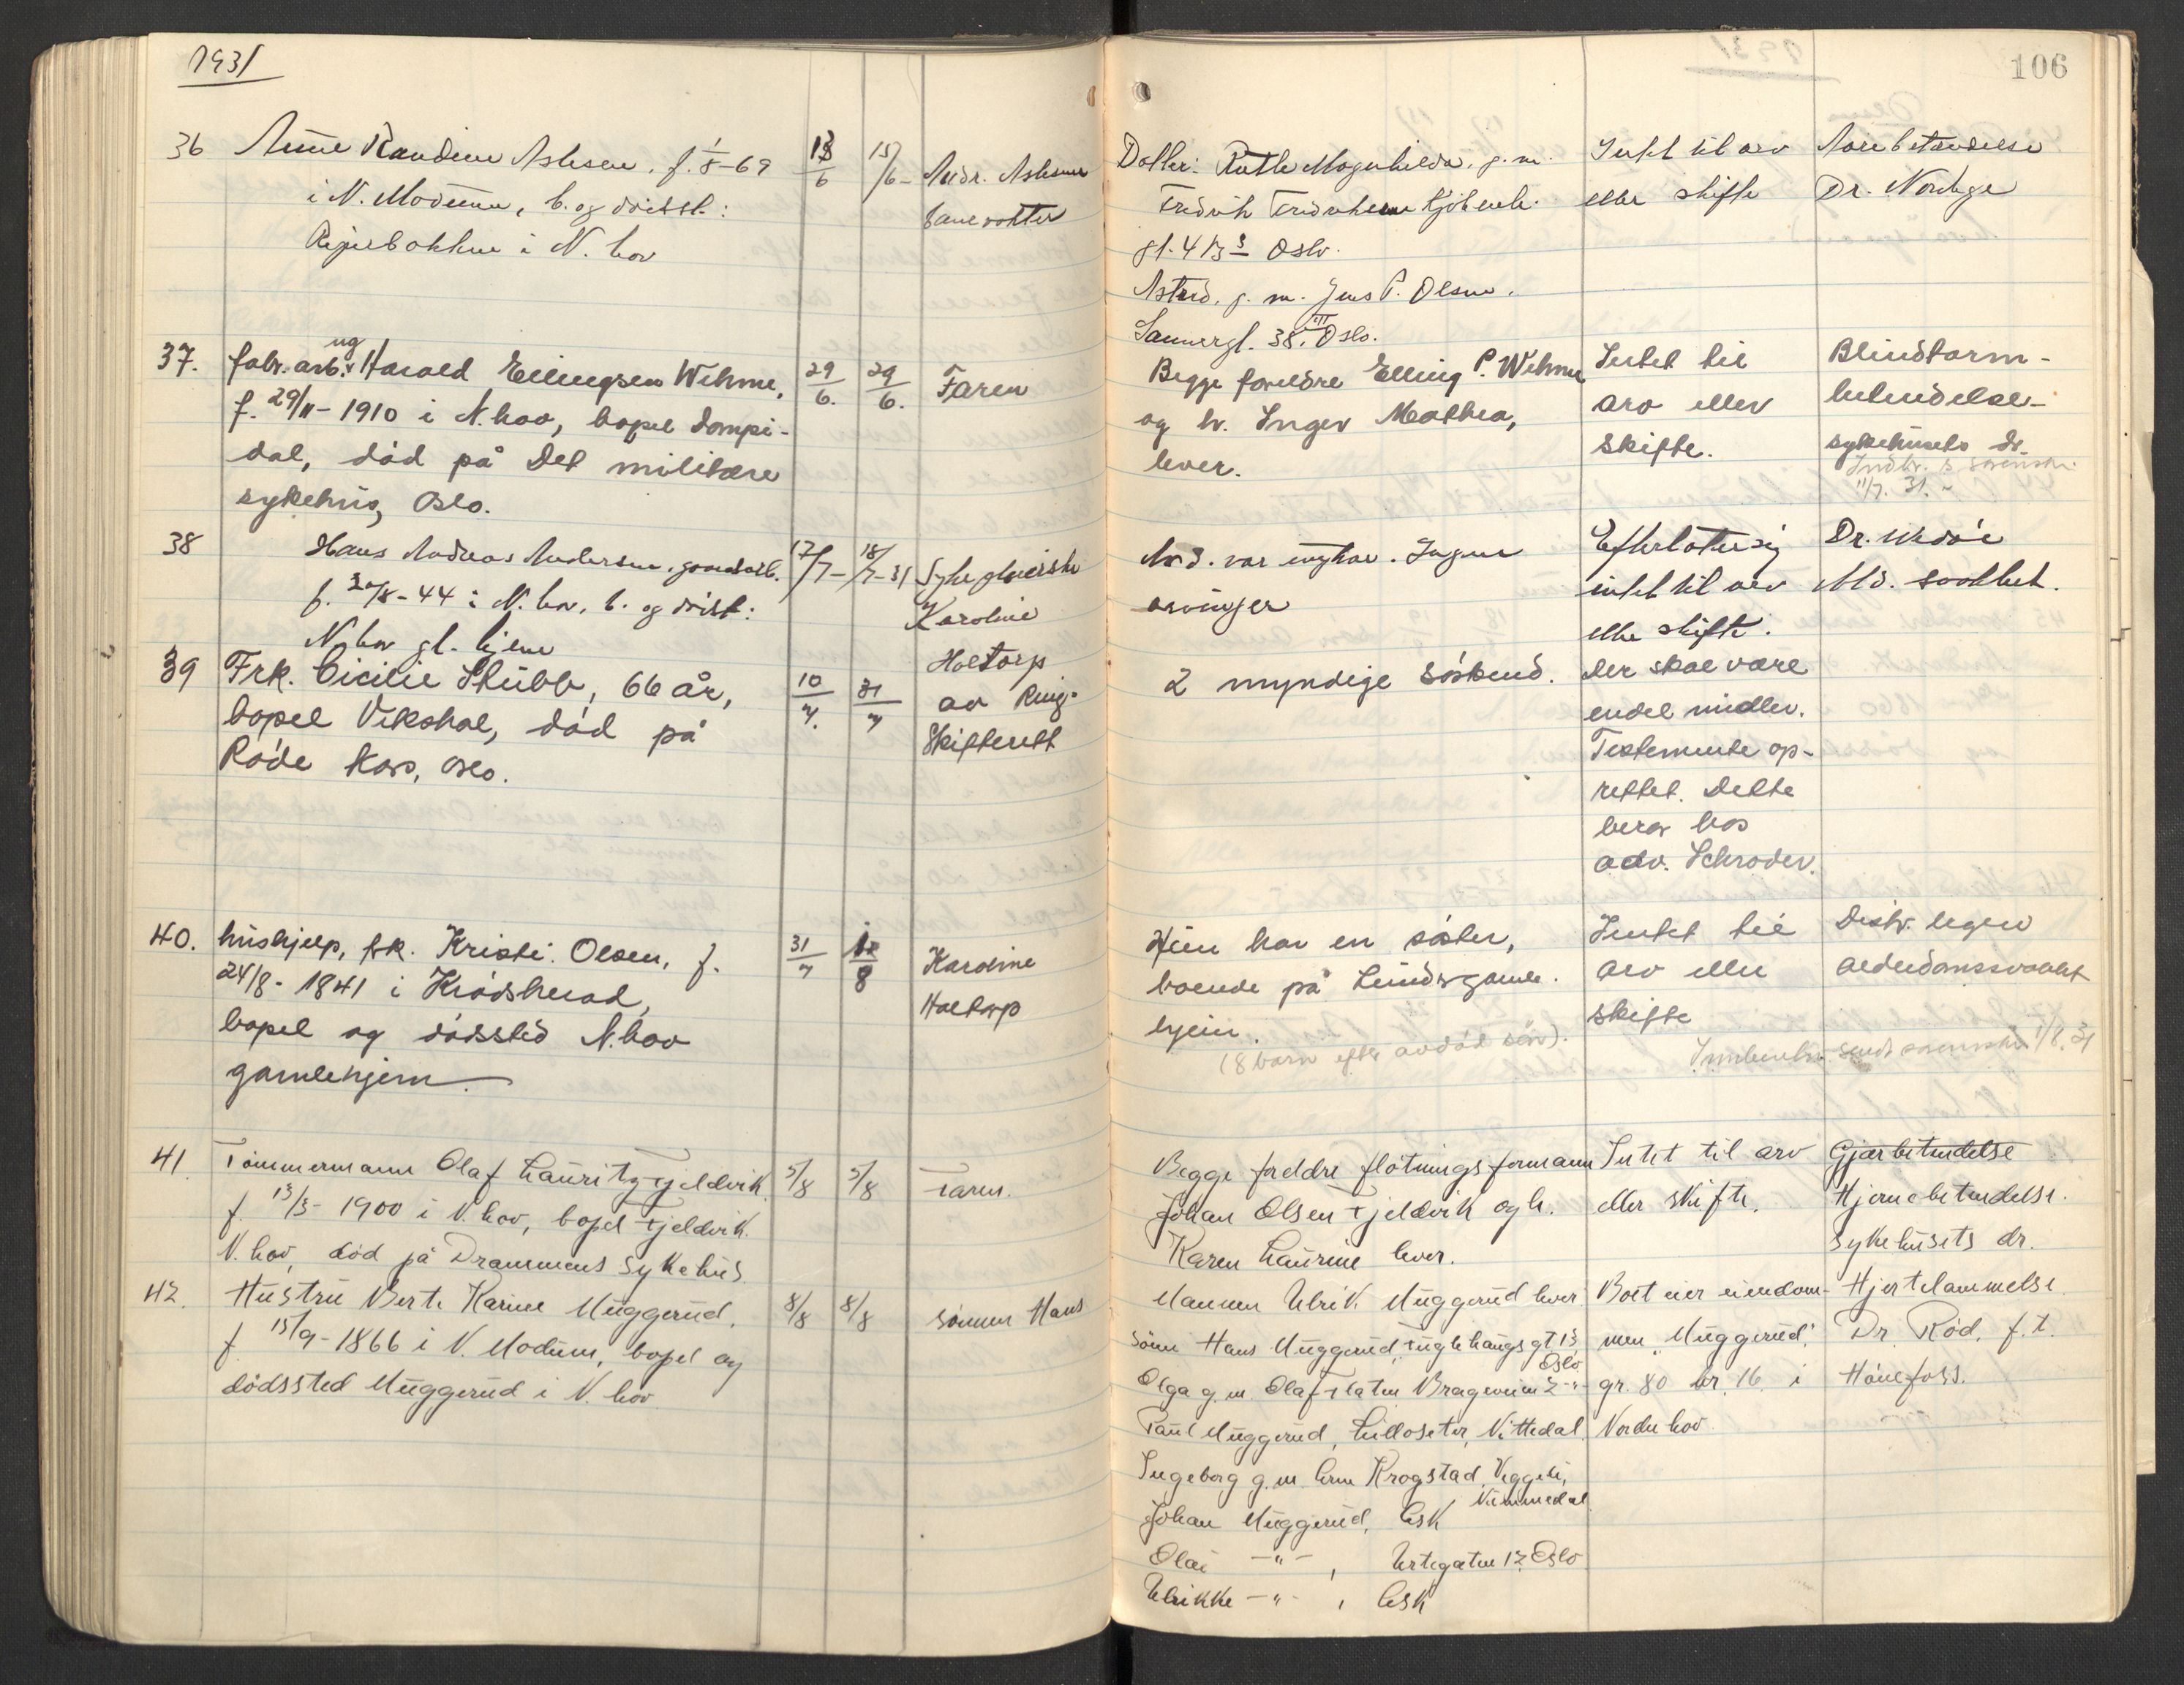 1931
106
36 Anne Randine Aslesen. f. 1/8-69 13/6 15/6- Andr. Aslesen
i N. Modum, b. og dødsst.: banevokter
i N. hov
Datter: Ruth Magnhilda, g. m. Intet til arv Aarebetændelse
Fredrik Kjøbenh. eller skifte Dr.
gt. 4 B 3 Oslo.
Astrid, g. m. Jens P. Olsen.
Sannergt. 38 III Oslo.
37. fabr. arb. ug Harald Ellingsen Wehme, 29/6. 29/6. Faren
f. 29/11-1910 i N.hov, bopel Dompi-
dal, død på Det militære
sykehus, Oslo.
Begge foreldre Elling P. Wehme Intet til Blindtarm-
og h. Inger Mathea, arv eller betendelse-
lever. skifte. sykehusets dr.
11/7. 31.
38 Hans Andreas Andersen, gaardsarb. 17/7- 18/7-31 Sykepleierske
f. 30/8-44 i N. hov, b. og dødsst: Karoline
N hov gl. hjem Holtorp
var ungkar. Ingen Efterlater sig Dr.
arvinger intet til arv Ald. svakhet.
eller skifte.
39 Frk. Cicilie Stubb, 66 år, 10/7. 31/7 av Ring.
bopel Vikshol, død på Skifterett
Røde Kors, Oslo.
2 myndige søskend. Der skal være
endel midler.
Testemente op-
rettet. Dette
bero hos
adv. Schrøder.
40. hushjelp, frk. Kristi. Olsen, f. 31/7 8 Karoline
24/8-1841 i Krødsherad, Holtorp
bopel og dødssted N.hov
gamlehjem
Hun har en søster, Intet til Distr. legen
boende på Lunds gamle. arv eller alderdomssvakhet
hjem. skifte
(8 barn efter avdød søn). 1/8. 31
41. Tømmermann Olaf Lauritz Fjeldvik 5/8 5/8 Faren.
f. 13/3-1900 i N. hov, bopel Fjeldvik
N. hov, død på Drammens sykehus.
Begge foreldre fløtningsformann Intet til arv Gjærbetendelse
Johan Olsen Fjeldvik og h. eller skifte. Hjernebetendelse.
Karen Laurine lever. Sykehusets dr.
42. Hustru Berte Karine Muggerud, 8/8 8/8 sønnen Hans
f. 15/9-1866 i N. Modum, bopel og
dødssted Muggerud i N. hov
Mannen Ulrik Muggerud lever Boet eier eiendom- Hjertelammelse
sønn Hans Muggerud, Fuglehaugsgt 13 men "Muggerud" Dr. Rød, f.t.
Oslo
Olga g. m. Olaf Flaten 2 -"- gr. 80 br. 16 i Hønefoss.
Paul Muggerud, Lilloseter, Nittedal. Norderhov
Ingeborg g. m. Krogstad Veggeli,
Nummedal
Johan Muggerud, Ask
Olai -"- , Urtegaten 12 Oslo
Ulrikke -"- , Ask